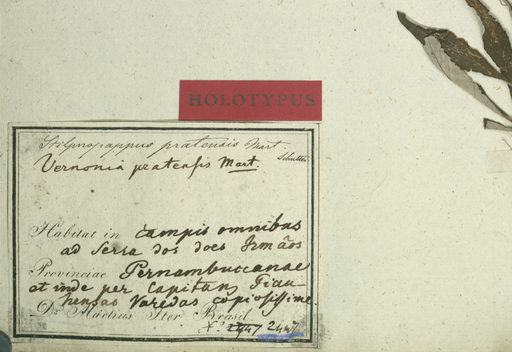 HOLOTYPUS
Stilpnopappus pratensis Mart.
Schultes
Vernonia pratensis Mart.
Habitat in campis omnibus
ad Serra dos does Irmãos
Provinciae Pernambuccanae
et inde per Capitan. Piau
hensao Varedas copiosissime
Dr. Martius Iter Brasil.
N.º 2447 2447